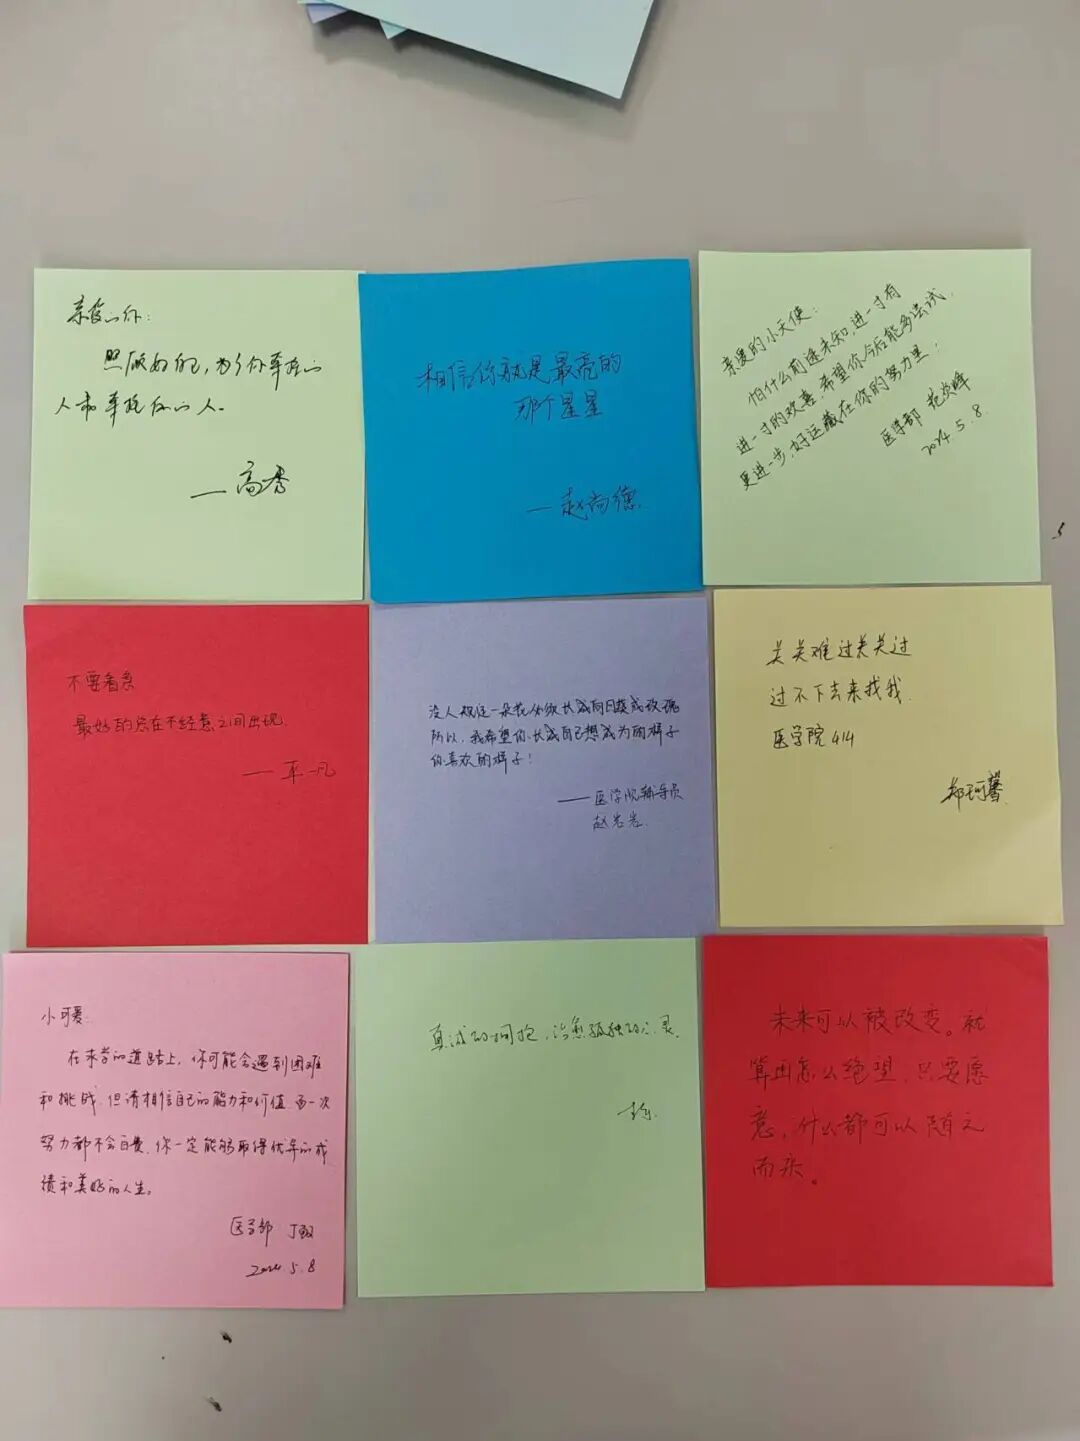 亲爱的你：
照顾好自己，为了你牵挂的
人和牵挂你的人。
——高秀
相信你就是最亮的
那个星星
——赵尚德
亲爱的小天使：
怕什么前途未知，进一寸有
进一寸的欢喜，希望你今后能多尝试，
更进一步，好运藏在你的努力里！
医学部
2024.5.8.
不要着急
最好的总在不经意之间出现
——平一凡
没人规定一朵花必须长成向日葵或玫瑰
所以，我希望你长成自己想成为的样子
你喜欢的样子！
——医学院辅导员
赵岩岩
关关难过关关过
过不下去来找我
医学院414
郑珂馨
小可爱：
在求学的道路上，你可能会遇到困难
和挑战，但请相信自己的能力和价值，每一次
努力都不会白费，你一定能够取得优异的成
绩和美好的人生。
医学部
2024.5.8
真诚的拥抱，治愈孤独的心灵
未来可以被改变。就
算再怎么绝望，只要愿
意，什么都可以随之
而来。